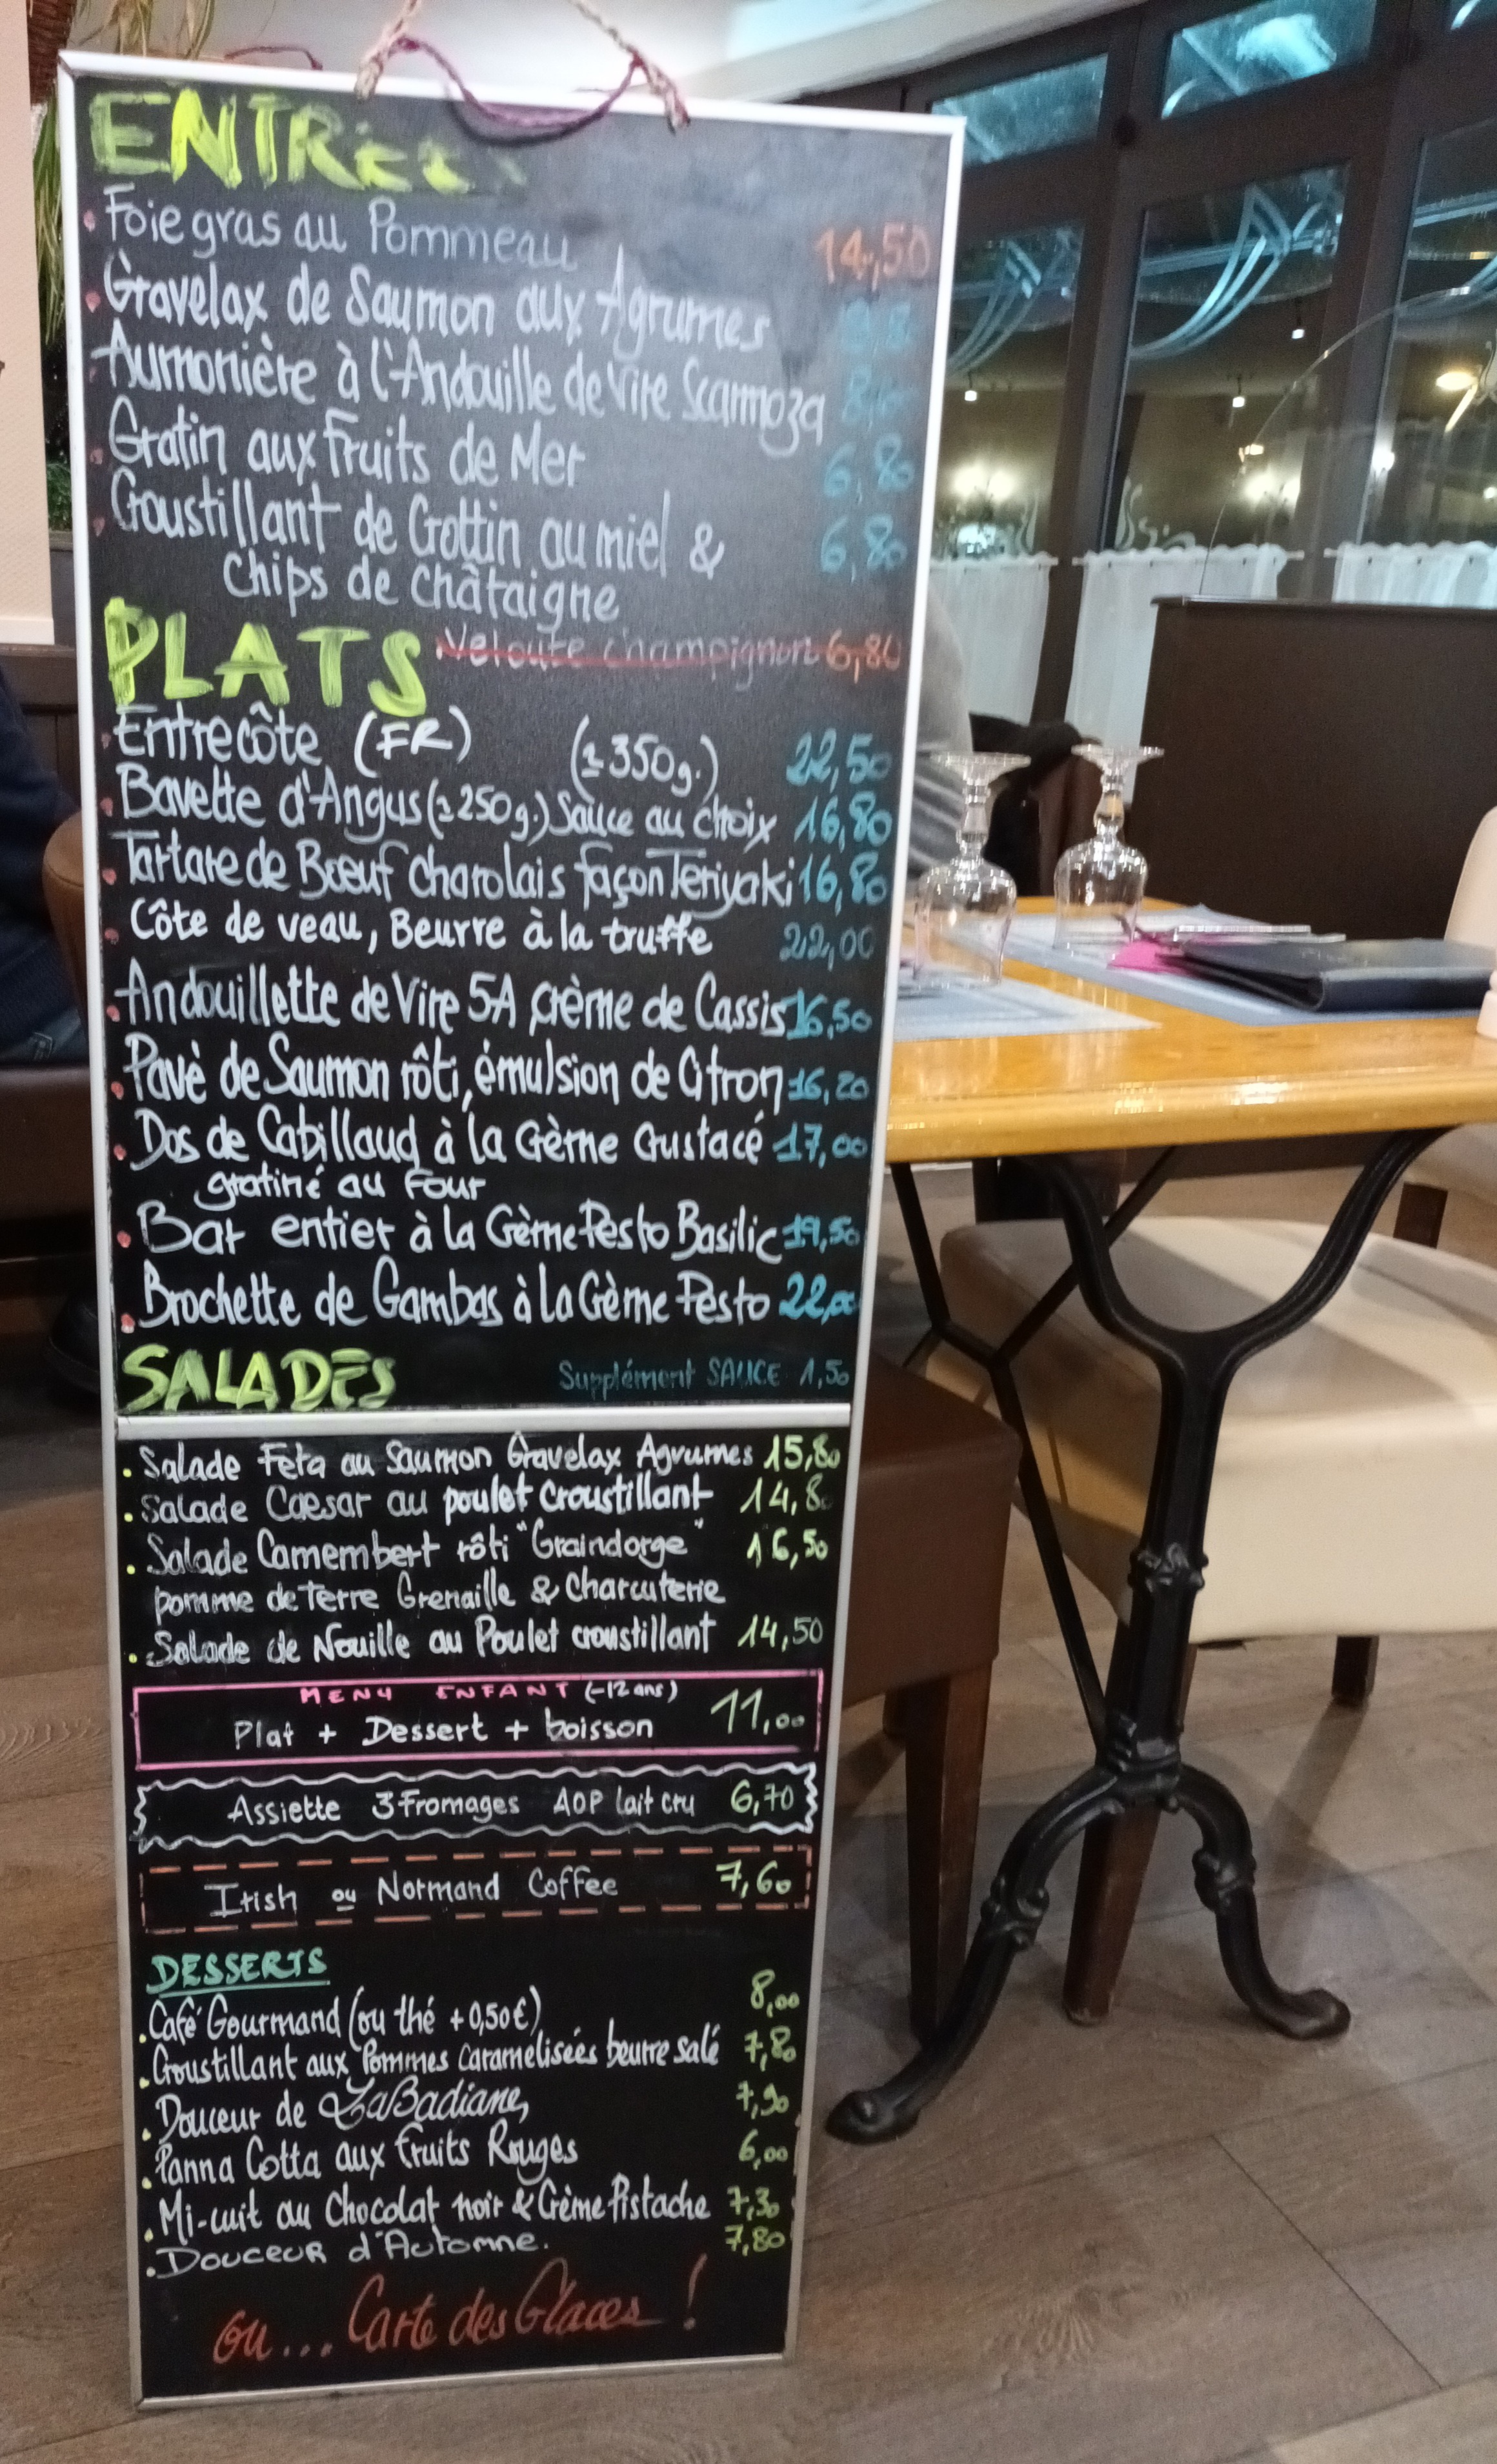 ENTRÉES
Foie gras au Pommeau 14,50
Gravelax de Saumon aux Agrumes
Aumonière à l'Andouille de Vire Scarmoza
Gratin aux Fruits de Mer 6,80
Croustillant de Crottin au miel & 6,80
Chips de châtaigne
PLATS Velouté champignon 6,80
Entrecôte (FR) (±350g.) 22,50
Bavette d'Angus (±250g.) Sauce au choix 16,80
Tartare de Bœuf charolais façon Teriyaki 16,80
Côte de veau, Beurre à la truffe 22,00
Andouillette de Vire 5A crème de Cassis 16,50
Pavè de Saumon rôti, émulsion de Citron 16,20
Dos de Cabillaud à la Crème Crustacé 17,00
gratiné au Four
Bar entier à la Crème Pesto Basilic 19,50
Brochette de Gambas à la Crème Pesto 22,00
SALADES Supplément SAUCE 1,50
Salade Feta au Saumon Gravelax Agrumes 15,80
Salade Caesar au poulet croustillant 14,80
Salade Camembert rôti "Graindorge" 16,50
pomme de Terre Grenaille & Charcuterie
Salade de Nouille au Poulet croustillant 14,50
MENU ENFANT (-12 ans) 11,00
Plat + Dessert + boisson
Assiette 3 Fromages AOP lait cru 6,70
Irish ou Normand Coffee 7,60
DESSERTS
Café Gourmand (ou thé +0,50€) 8,00
Croustillant aux Pommes caramelisées beurre salé 7,80
Douceur de La Badiane 7,90
Panna Cotta aux fruits Rouges 6,00
Mi-cuit au Chocolat noir & Crème Pistache 7,30
Douceur d'Automne. 7,80
ou... Carte des Glaces !